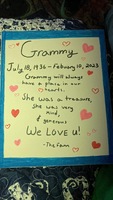 Grammy
July 18, 1936 - February 10, 2023
Grammy will always
have a place in our
hearts.
She was a treasure,
She was very
kind,
& generous
We LOVE u!
-The Fam